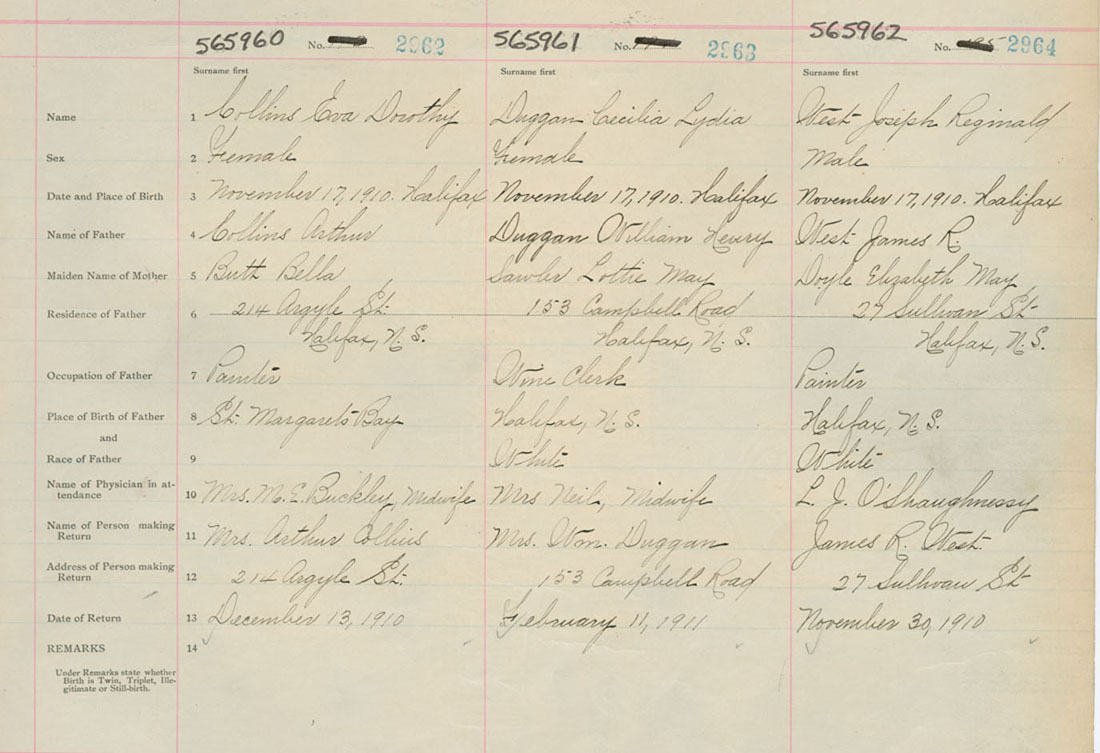 565960 No. 2962 565961 No. 2963 565962 No. 2964
Surname first Surname first Surname first
Name 1 Collins Eva Dorothy Duggan Cecilia Lydia West Joseph Reginald
Sex 2 Female Female Male
Date and Place of Birth 3 November 17, 1910. Halifax November 17, 1910. Halifax November 17, 1910. Halifax
Name of Father 4 Collins Arthur Duggan William Henry West James R.
Maiden Name of Mother 5 Butt Bella Sawler Lottie May Doyle Elizabeth May
Residence of Father 6 214 Argyle St. 153 Campbell Road 27 Sullivan St.
Halifax, N. S. Halifax, N. S. Halifax, N. S.
Occupation of Father 7 Painter Wine Clerk Painter
Place of Birth of Father 8 St. Margarets Bay Halifax, N. S. Halifax, N. S.
and
Race of Father 9 White White
Name of Physician in at-
tendance 10 Mrs. M. E. Buckley, Midwife Mrs Neil, Midwife L. J. O'Shaughnessy
Name of Person making
Return 11 Mrs. Arthur Collins Mrs. Wm. Duggan James R. West.
Address of Person making
Return 12 214 Argyle St. 153 Campbell Road 27 Sullivan St
Date of Return 13 December 13, 1910 February 11, 1911 November 30, 1910
REMARKS 14
Under Remarks state whether
Birth is Twin, Triplet, Ille-
gitimate or Still-birth.